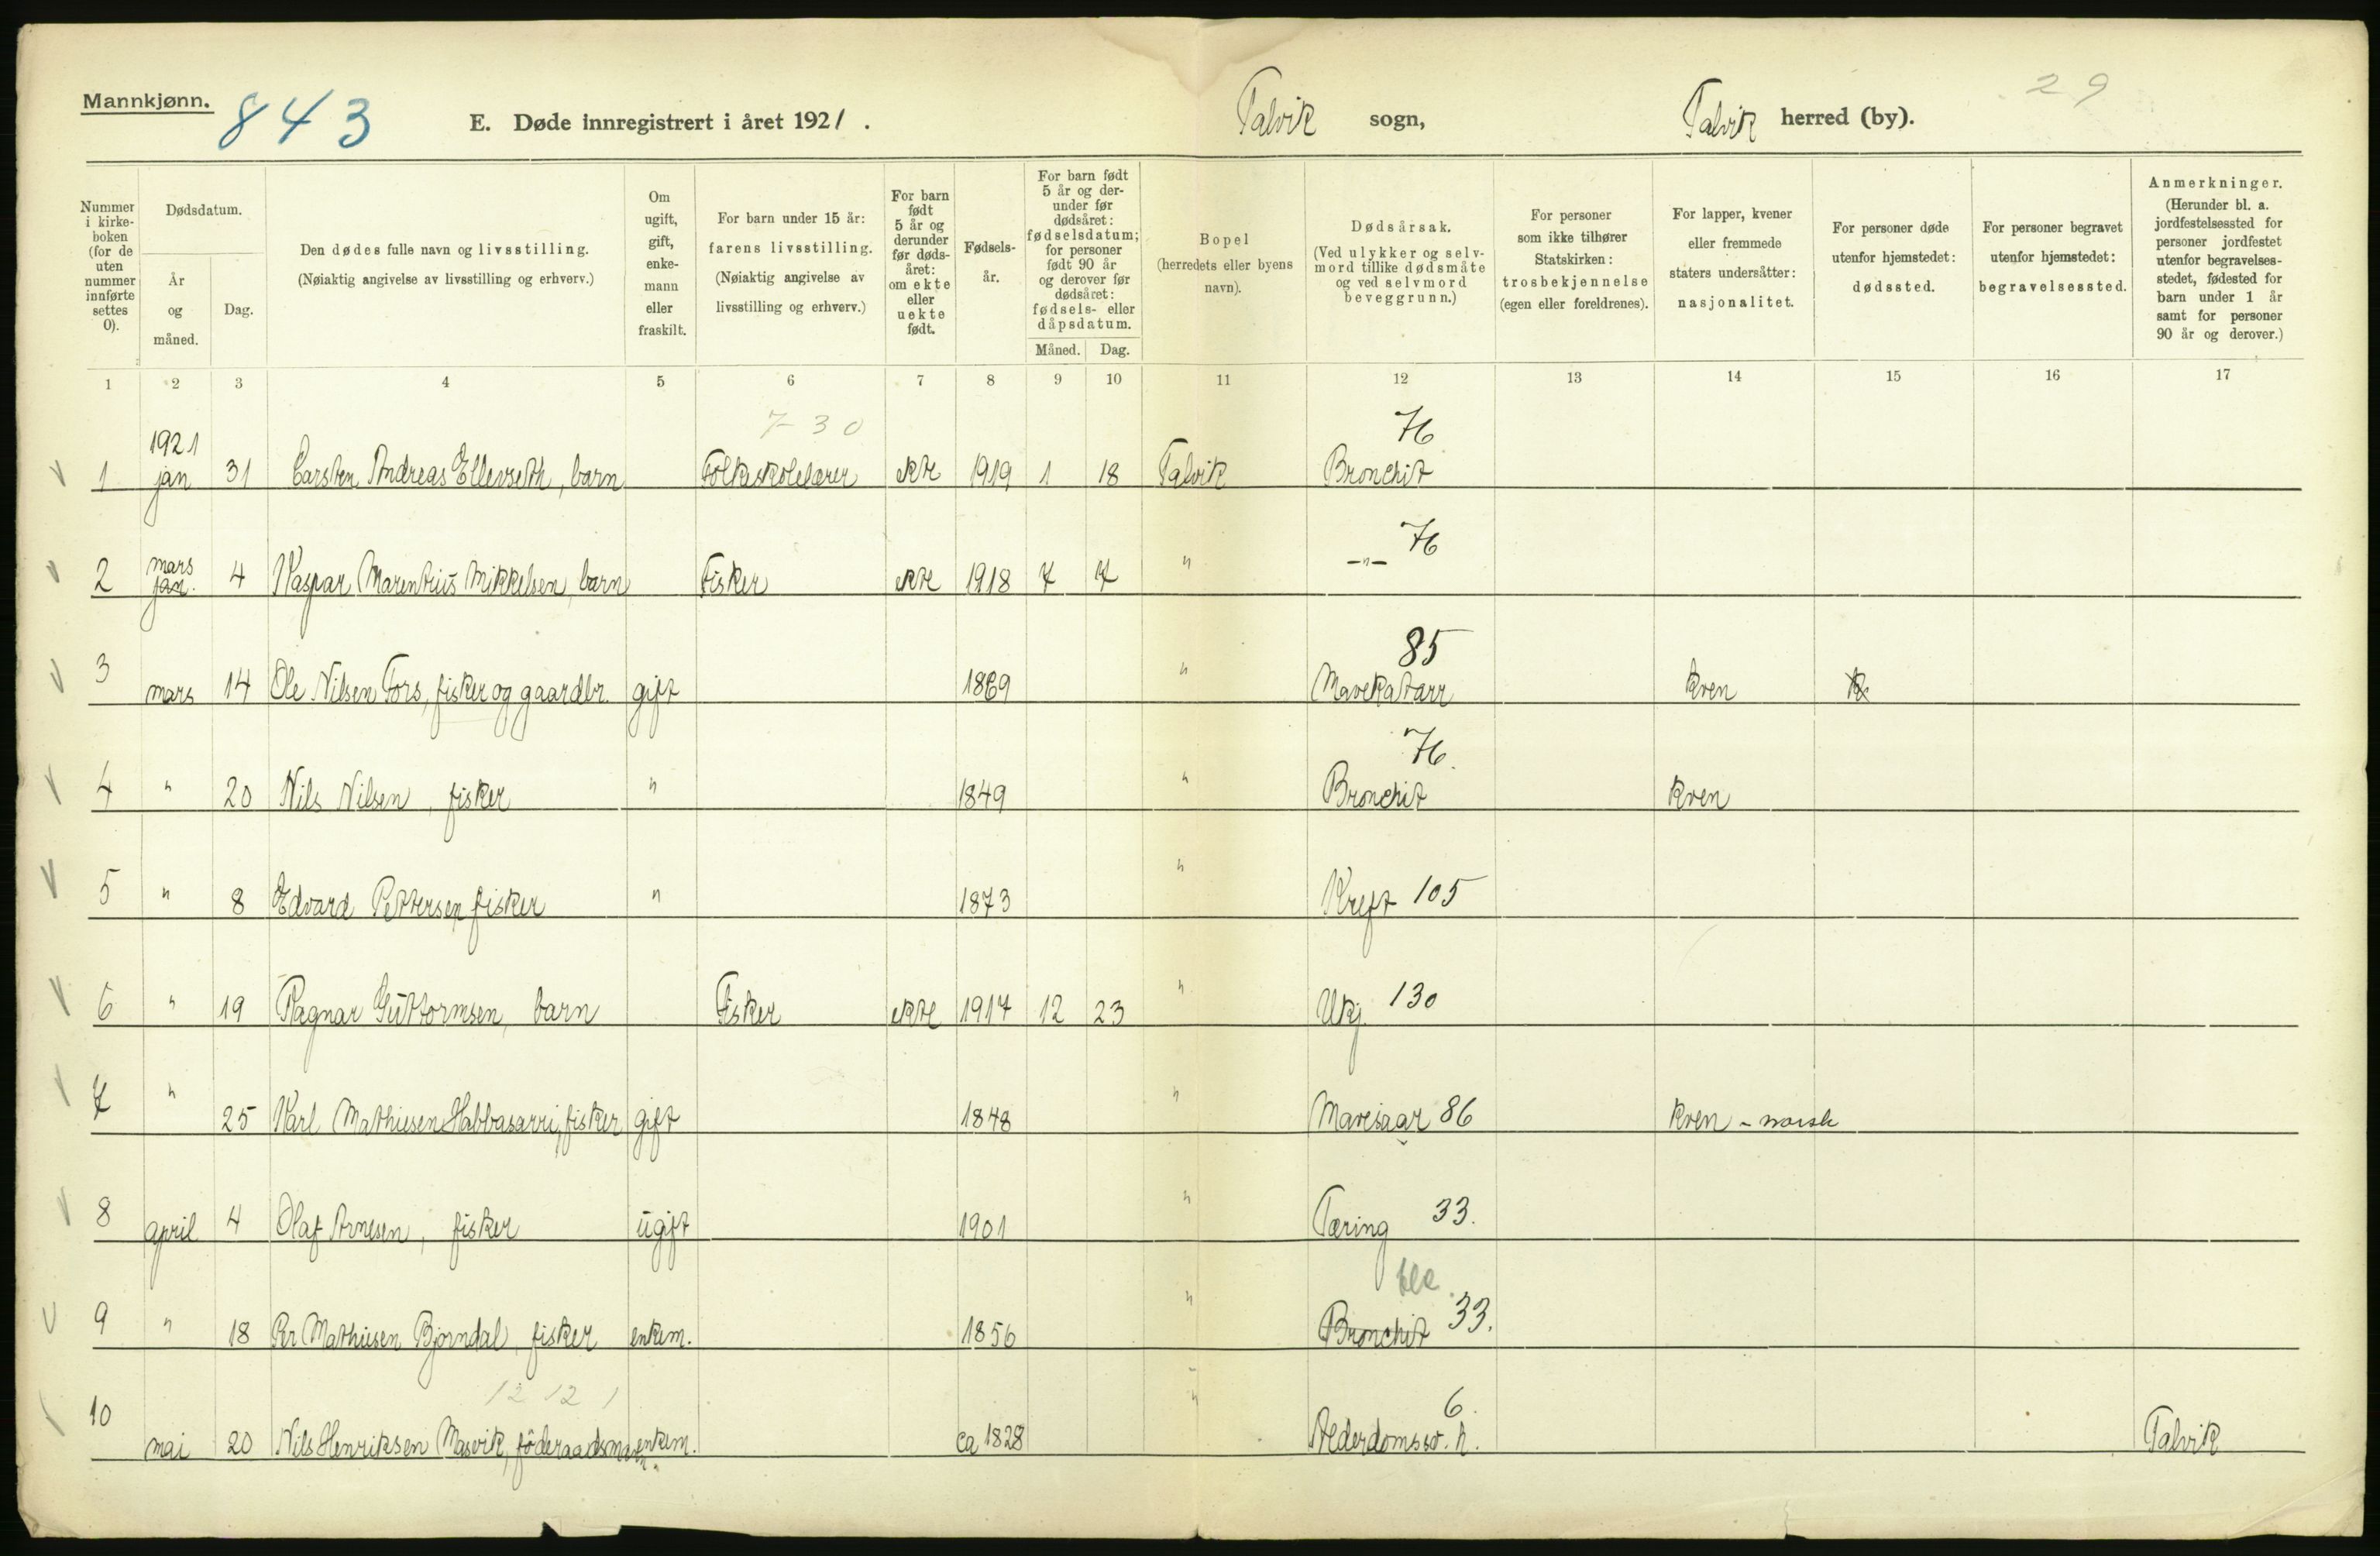 Mannkjønn.
843
E. Døde innregistrert i året 1921.
Talvik sogn,
Talvik herred (by).
29
Nummer i kirkeboken (for de uten nummer innførte settes 0).
Dødsdatum.
År og måned.
Dag.
Den dødes fulle navn og livsstilling.
(Nøiaktig angivelse av livsstilling og erhverv.)
Om ugift, gift, enkemann eller fraskilt.
For barn under 15 år: farens livsstilling. (Nøiaktig angivelse av livsstilling og erhverv.)
For barn født 5 år og derunder før dødsåret: om ekte eller uekte født.
Fødselsår.
For barn født 5 år og derunder før dødsåret: fødselsdatum; for personer født 90 år og derover før dødsåret: fødsels- eller dåpsdatum.
Måned. Dag.
Bopel (herredets eller byens navn).
Dødsårsak. (Ved ulykker og selvmord tillike dødsmåte og ved selvmord beveggrunn.)
For personer som ikke tilhører Statskirken: trosbekjennelse (egen eller foreldrenes).
For lapper, kvener eller fremmede staters undersåtter: nasjonalitet.
For personer døde utenfor hjemstedet: dødssted.
For personer begravet utenfor hjemstedet: begravelsessted.
Anmerkninger. (Herunder bl. a. jordfestelsessted for personer jordfestet utenfor begravelsesstedet, fødested for barn under 1 år samt for personer 90 år og derover.)
1 2 3 4 5 6 7 8 9 10 11 12 13 14 15 16 17
7-30 76
1 1921 jan 31 Carsten Andreas Ellevseth, barn Folkeskolelærer ekte 1919 1 18 Talvik Bronchit
76
2 mars jan. 4 Kaspar Marentius Mikkelsen, barn Fisker ekte 1918 7 7 " -"-
85
3 mars 14 Ole Nilsen Fors, fisker og gaardbr. gift 1869 " Mavekatarr kven
76.
4 " 20 Nils Nilsen, fisker " 1849 " Bronchit kven
5 " 8 Edvard Pettersen, fisker " 1873 " Kreft 105
6 " 19 Ragnar Guttormsen, barn Fisker ekte 1917 12 23 " Ukj. 130
7 " 25 Karl Mathiesen Habbasarri, fisker gift 1848 " Mavesaar 86 kven - norsk
8 april 4 Olaf Arnesen, fisker ugift 1901 " Tæring 33.
9 " 18 Per Mathiesen Bjørndal, fisker enkem. 1856 " Bronchit 33.
12 12 1 6.
10 mai 20 Nils Henriksen Masvik, føderaadsmann enkem. ca 1828 " Alderdomssv. h. Talvik